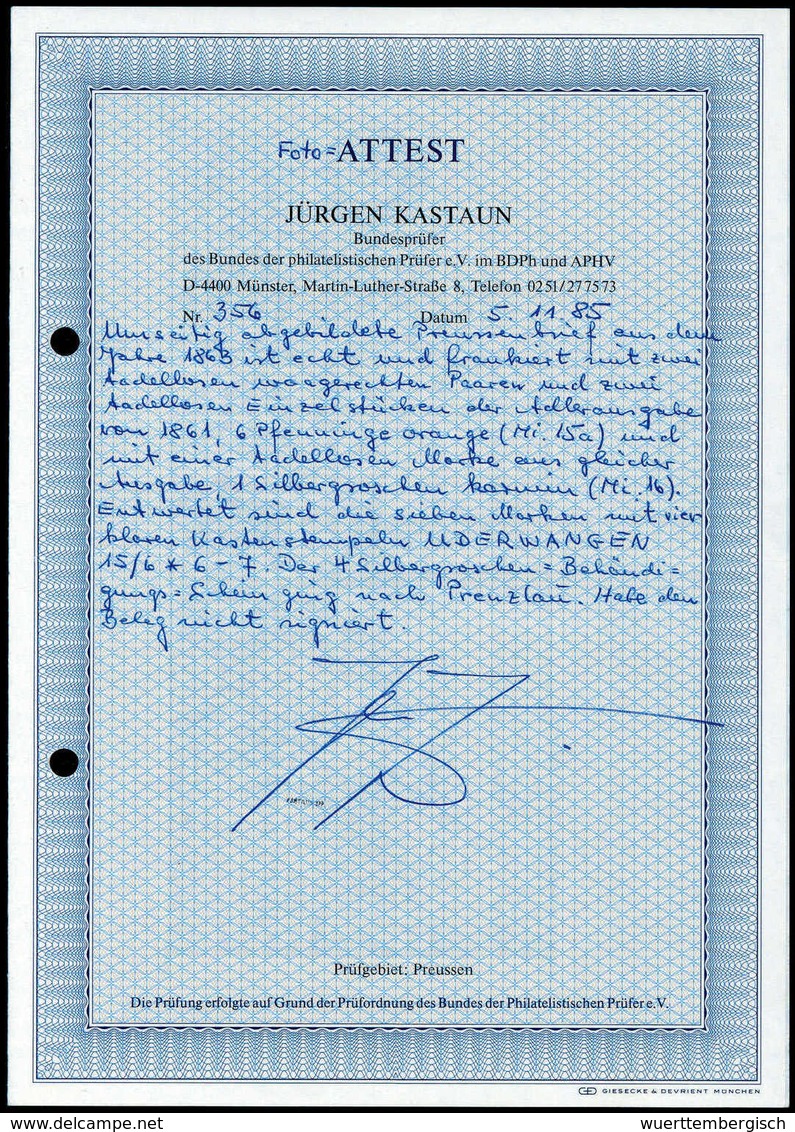 Foto=ATTEST
JÜRGEN KASTAUN
Bundesprüfer
des Bundes der philatelistischen Prüfer e.V. im BDPh und APHV
D-4400 Münster, Martin-Luther-Straße 8, Telefon 0251/277573
Nr. 356 Datum 5. 11. 85
Umseitig abgebildete Preussenbrief aus dem
Jahre 1863 ist echt und frankiert mit zwei
tadellosen waagerechten Paaren und zwei
tadellosen Einzelstücken der Adlerausgabe
von 1861, 6 Pfenninge orange (Mi. 15a) und
mit einer tadellosen Marke aus gleicher
Ausgabe, 1 Silbergroschen karmin (Mi. 16).
Entwertet sind die sieben Marken mit vier
klaren Kastenstempeln UDERWANGEN
15/6 * 6-7. Der 4 Silbergroschen = Behändi=
gungs=Schein ging nach Prenzlau. Habe den
Beleg nicht signiert.
Prüfgebiet: Preussen
Die Prüfung erfolgte auf Grund der Prüfordnung des Bundes der Philatelistischen Prüfer e.V.
GIESECKE & DEVRIENT MÜNCHEN
wuerttembergisch